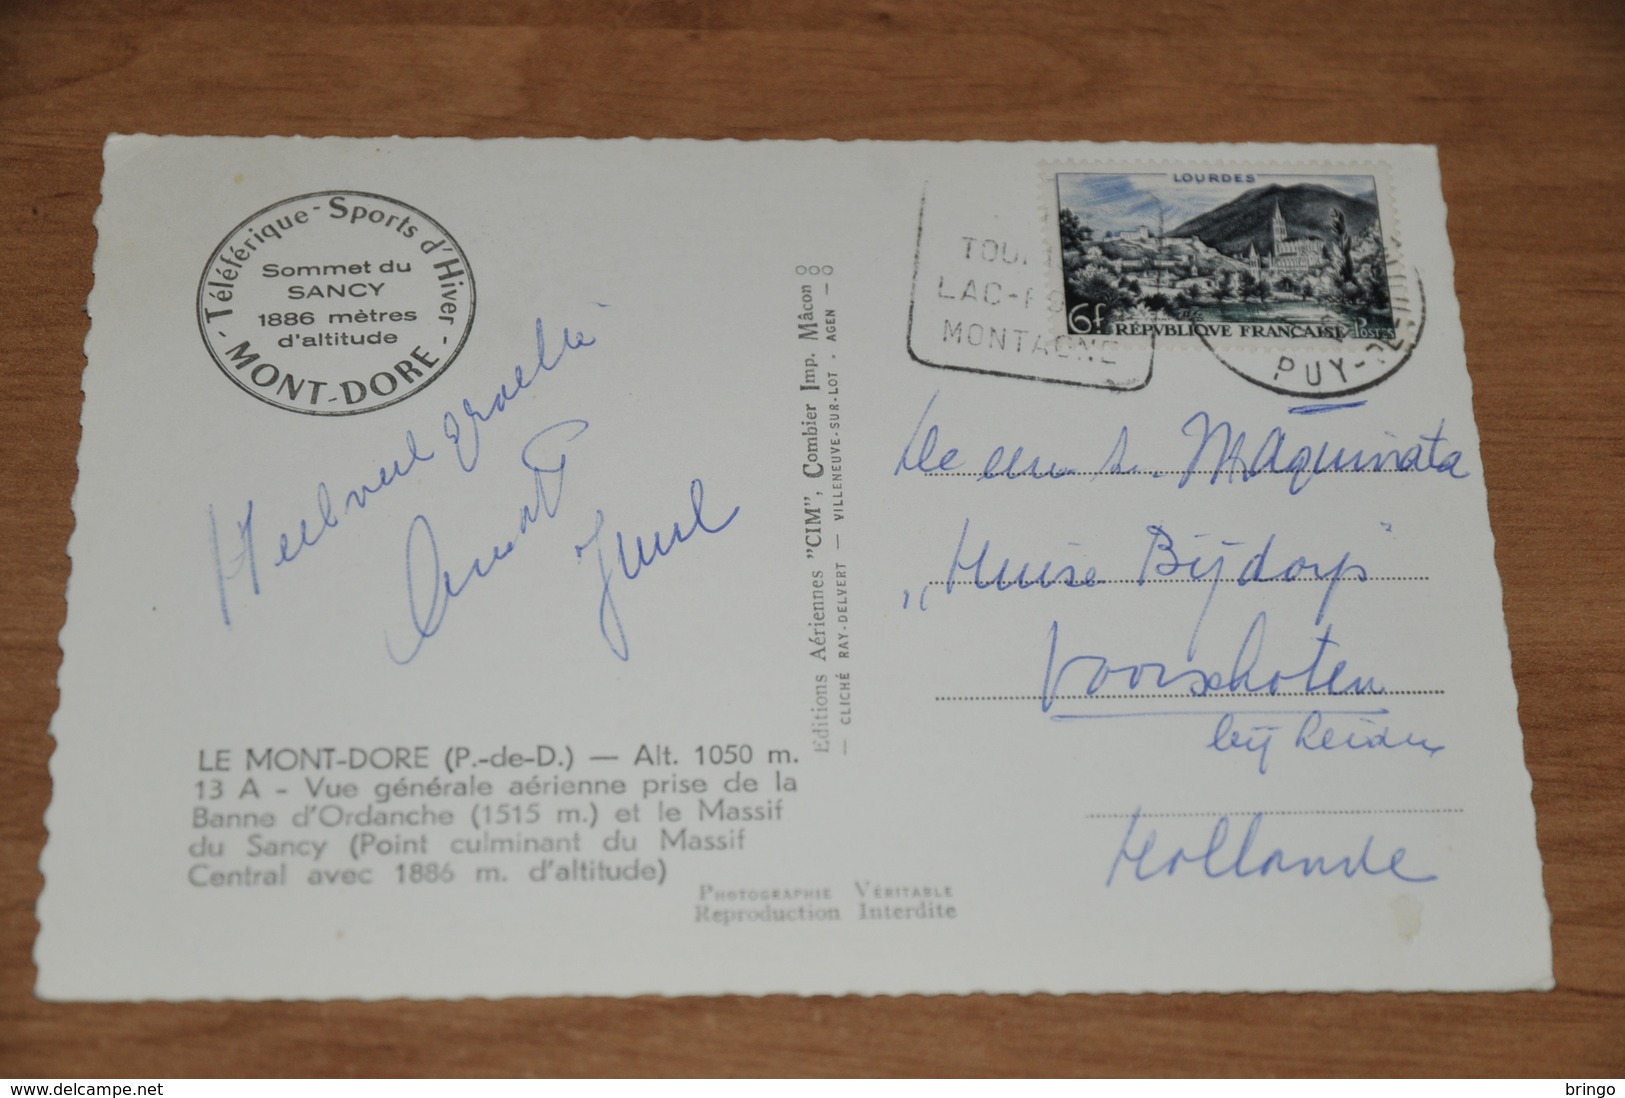 - Téléférique - Sports d'Hiver -
Sommet du
SANCY
1886 mètres
d'altitude
MONT-DORE
Heel veel
LE MONT-DORE (P.-de-D.) — Alt. 1050 m.
13 A - Vue générale aérienne prise de la
Banne d'Ordanche (1515 m.) et le Massif
du Sancy (Point culminant du Massif
Central avec 1886 m. d'altitude)
PHOTOGRAPHIE VÉRITABLE
Reproduction Interdite
Editions Aériennes "CIM", Combier Imp. Mâcon
— CLICHÉ RAY-DELVERT — VILLENEUVE-SUR-LOT - AGEN —
LAC-
MONTAGNE
LOURDES
6f RÉPVBLIQUE FRANÇAISE Postes
PUY-DE-
M Aquinata
„Huize Bijdorp"
Voorschoten
bij Leiden
Hollande
delcampe.net
bringo